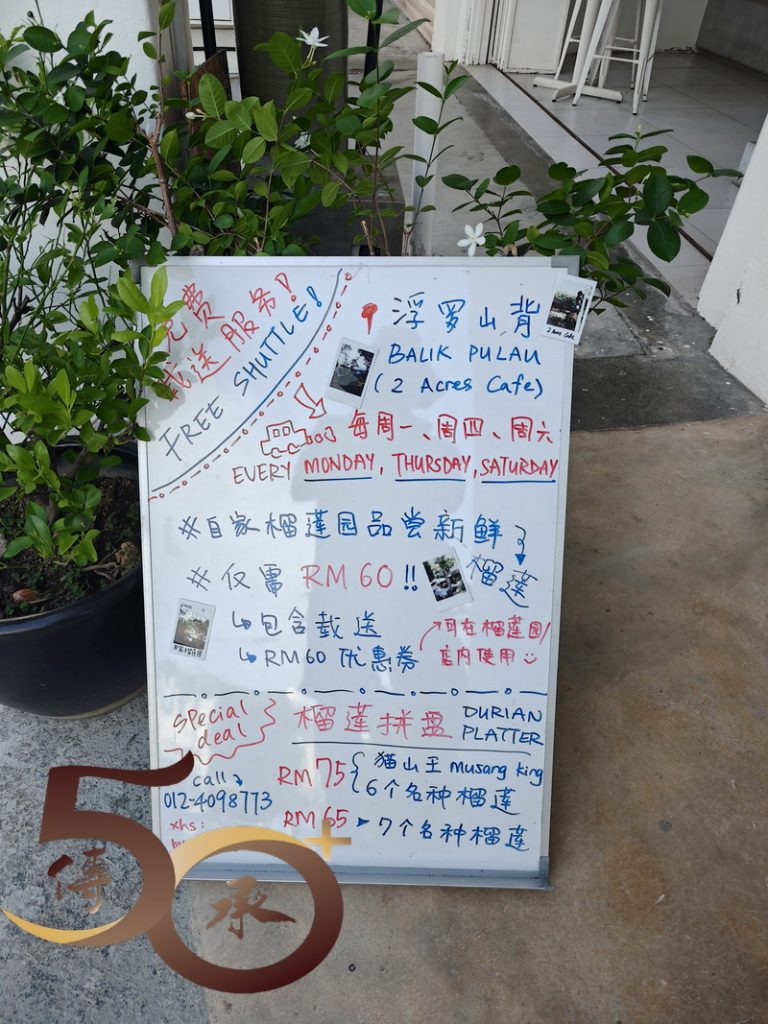 免费
载送服务!
FREE SHUTTLE!
浮罗山背
BALIK PULAU
(2 Acres Cafe)
2 Acres Cafe
每周一、周四、周六
EVERY MONDAY, THURSDAY, SATURDAY
※自家榴莲园品尝新鲜
榴莲
※仅需 RM60!!
↳包含载送
↳RM60 优惠券
可在榴莲园/
店内使用
special
deal
榴莲拼盘 DURIAN
PLATTER
call
012-4098773
RM75 { 猫山王 musang king
6个各种榴莲
RM65 ➤ 7个各种榴莲
xhs:
50+
傳承